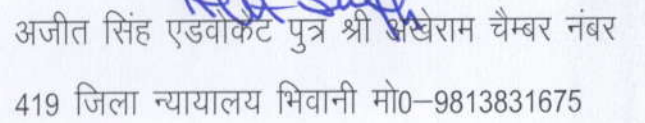 अजीत सिंह एडवोकेट पुत्र श्री अखेराम चैम्बर नंबर
419 जिला न्यायालय भिवानी मो0–9813831675